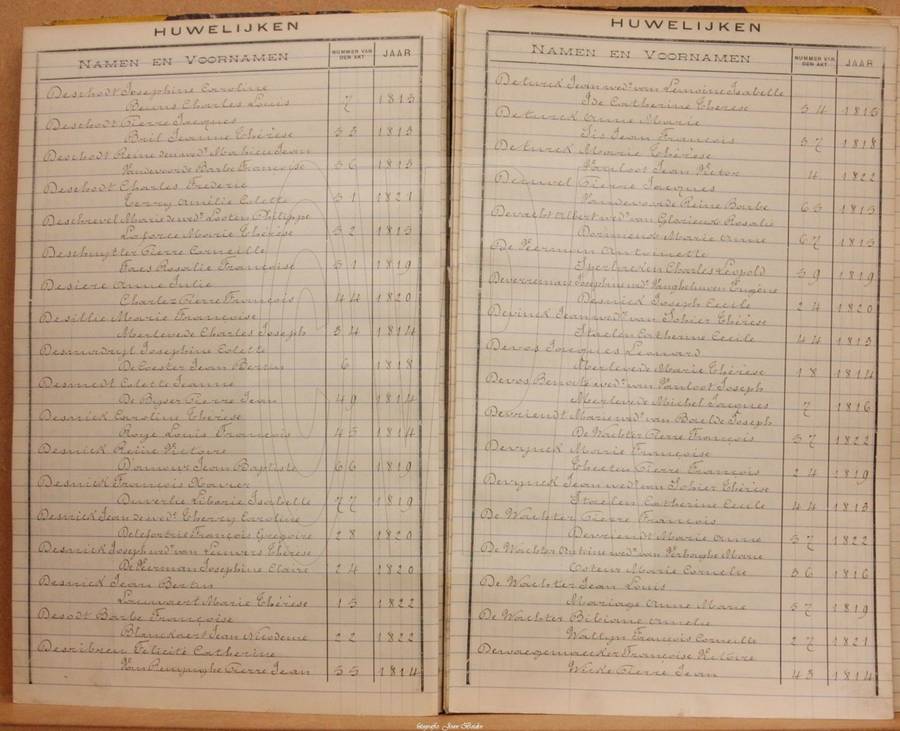 HUWELIJKEN
NAMEN EN VOORNAMEN NUMMER VAN DEN AKT JAAR
Deschodt Josephine Caroline
Beuns Charles Louis 7 1813
Deschodt Pierre Jacques
Bril Jeanne Thérèse 33 1813
Deschodt Reine de wed. Mahieu Jean
Vandevoorde Barbe Françoise 36 1813
Deschodt Charles Frederic
Terry Amélie Colette 31 1821
Deschrevel Marie de wed. Looten Philippe
Laforce Marie Thérèse 32 1813
Deschuytter Pierre Corneille
Faes Rosalie Françoise 31 1819
Desiere Anne Julie
Charlez Pierre François 44 1820
Desillie Marie Françoise
Merlevede Charles Joseph 34 1814
Josephine Colette
De Coester Jean Bertin 6 1818
Desmedt Colette Jeanne
De Byser Pierre Jean 49 1814
Desnick Caroline Thérèse
Roye Louis François 43 1814
Desnick Reine Victoire
D'amour Jean Baptiste 66 1819
Desnick François Xavier
Duvertie Liborie Isabelle 77 1819
Desnick Jean de wed. Therry Carroline
Delefortrie François Grégoire 28 1820
Desnick Joseph wed. van Lauwers Thérèse
De Herman Josephine Claire 24 1820
Desnick Jean Bertin
Lauwaert Marie Thérèse 13 1822
Desodt Barbe Françoise
Blanckaert Jean Nicodeme 22 1822
Felicité Catherine
Van Renynghe Pierre Jean 33 1814
HUWELIJKEN
NAMEN EN VOORNAMEN NUMMER VAN DEN AKT JAAR
Deturck Jean wed. van Lemoine Isabelle
Ide Catherine Therese 34 1813
Deturck Anne Marie
Sis Jean François 37 1818
Deturck Marie Thérèse
Vanloot Jean Victor 4 1822
Pierre Jacques
Vandevoorde Reine Barbe 63 1813
Devacht Albert wed. van Glorieux Rosalie
Marie Anne 67 1813
Antoinette
Charles Leopold 39 1819
Eugène
Desnick Joseph Cecile 24 1820
Devinck Jean wed. van Sohier Thérèse
Staelen Catherine Cecile 44 1813
Devos Jacques Leonard
Merlevede Marie Thérèse 18 1814
Devos Benoite wed. van Vanloot Joseph
Merlevede Michel Jacques 7 1816
Devriendt Marie wed. van Baelde Joseph
De Wachter Pierre François 37 1822
Devynck Marie Françoise
Theeten Pierre François 24 1819
Devynck Jean wed. van Sohier Thérèse
Staelen Catherine Cecile 44 1813
De Wachter Pierre François
Devriendt Marie Anne 37 1822
De Wachter Antoine wed. van Verbeghe Marie
Coteur Marie Cornelie 36 1816
De Wachter Jean Louis
Mariage Anne Marie 37 1819
De Wachter Bibiane Amelie
Wallyn François Corneille 27 1821
Dewaegemaecker Françoise Victoire
Wicke Pierre Jean 43 1814